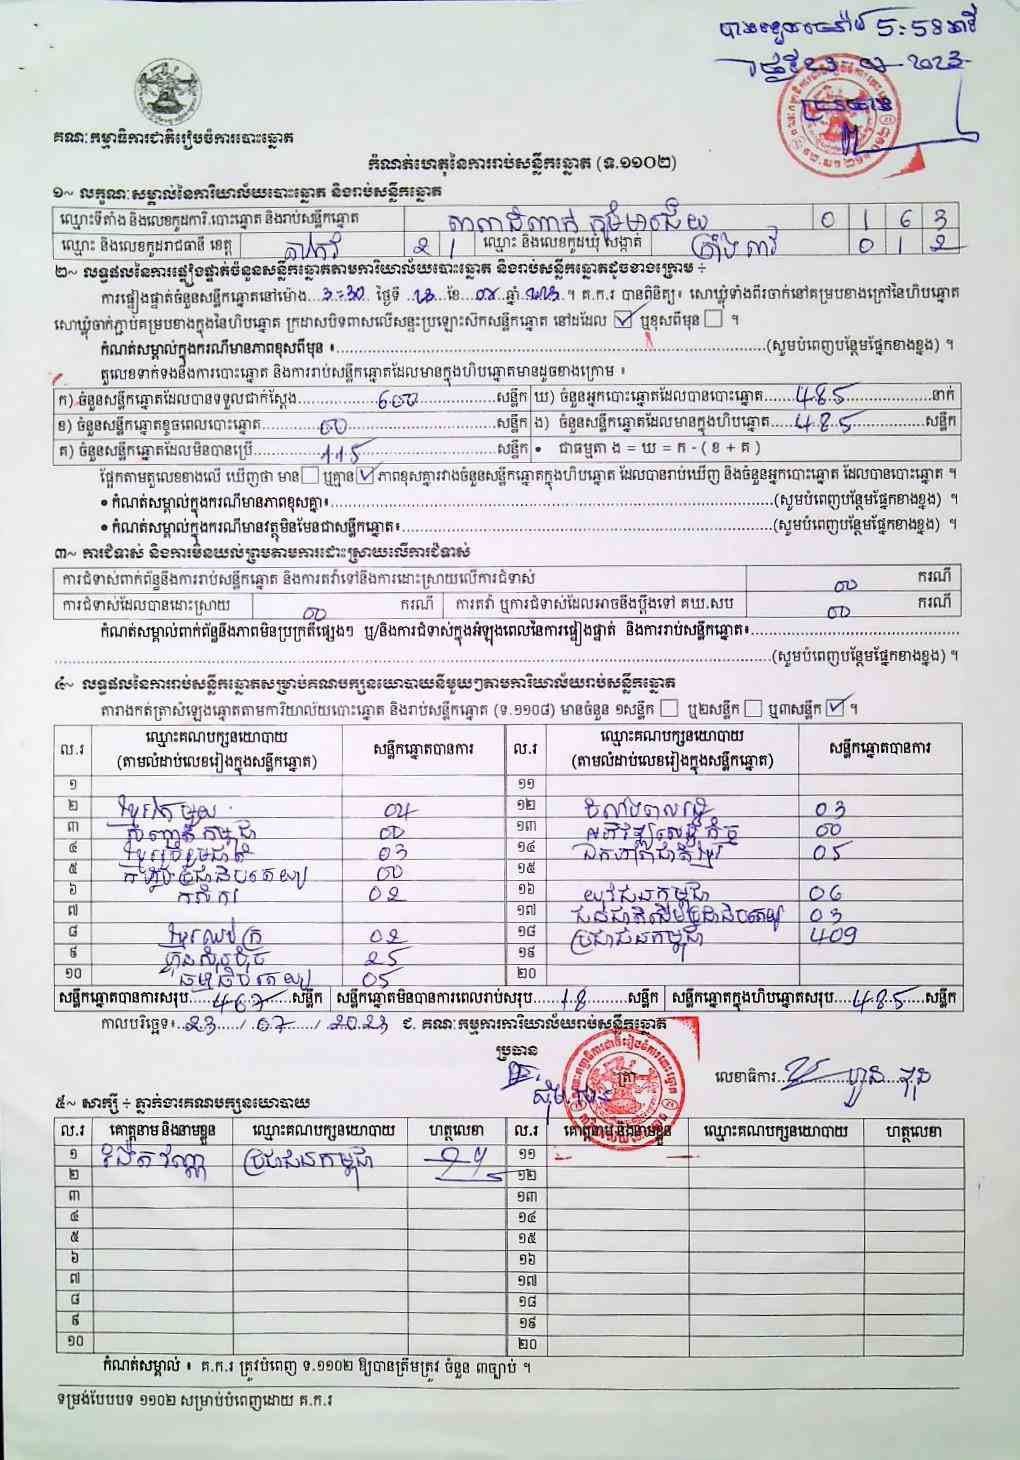 5:58
2023
គណៈកម្មាធិការជាតិរៀបចំការបោះឆ្នោត
កំណត់ហេតុនៃការរាប់សន្លឹកឆ្នោត (ទ.១១០២)
១~ លក្ខណៈសម្គាល់នៃការិយាល័យបោះឆ្នោត និងរាប់សន្លឹកឆ្នោត
ឈ្មោះទីតាំង និងលេខកូដការិ.បោះឆ្នោត និងរាប់សន្លឹកឆ្នោត 0 1 6 3
ឈ្មោះ និងលេខកូដរាជធានី ខេត្ត តាកែវ 2 1 ឈ្មោះ និងលេខកូដឃុំ សង្កាត់ 0 1 2
២~ លទ្ធផលនៃការផ្ទៀងផ្ទាត់ចំនួនសន្លឹកឆ្នោតតាមការិយាល័យបោះឆ្នោត និងរាប់សន្លឹកឆ្នោតដូចខាងក្រោម ÷
ការផ្ទៀងផ្ទាត់ចំនួនសន្លឹកឆ្នោតនៅម៉ោង 3:30 ថ្ងៃទី ខែ ឆ្នាំ 2023 ។ គ.ក.រ បានពិនិត្យ៖ សោឃ្លុំទាំងពីរចាក់នៅគម្របខាងក្រៅនៃហិបឆ្នោត
សោឃ្លុំចាក់ភ្ជាប់គម្របខាងក្នុងនៃហិបឆ្នោត ក្រដាសបិទពាសលើសន្ទះប្រឡោះស៊កសន្លឹកឆ្នោត នៅដដែល ☑ ឬខុសពីមុន ☐ ។
កំណត់សម្គាល់ក្នុងករណីមានភាពខុសពីមុន ៖ (សូមបំពេញបន្ថែមផ្នែកខាងខ្នង) ។
តួលេខទាក់ទងនឹងការបោះឆ្នោត និងការរាប់សន្លឹកឆ្នោតដែលមានក្នុងហិបឆ្នោតមានដូចខាងក្រោម ៖
ក) ចំនួនសន្លឹកឆ្នោតដែលបានទទួលជាក់ស្តែង 600 សន្លឹក ឃ) ចំនួនអ្នកបោះឆ្នោតដែលបានបោះឆ្នោត 485 នាក់
ខ) ចំនួនសន្លឹកឆ្នោតខូចពេលបោះឆ្នោត 00 សន្លឹក ង) ចំនួនសន្លឹកឆ្នោតដែលមានក្នុងហិបឆ្នោត 485 សន្លឹក
គ) ចំនួនសន្លឹកឆ្នោតដែលមិនបានប្រើ 115 សន្លឹក • ជាធម្មតា ង = ឃ = ក - ( ខ + គ )
ផ្អែកតាមតួលេខខាងលើ ឃើញថា មាន ☐ ឬគ្មាន ☑ ភាពខុសគ្នារវាងចំនួនសន្លឹកឆ្នោតក្នុងហិបឆ្នោត ដែលបានរាប់ឃើញ និងចំនួនអ្នកបោះឆ្នោត ដែលបានបោះឆ្នោត ។
• កំណត់សម្គាល់ក្នុងករណីមានភាពខុសគ្នា៖ (សូមបំពេញបន្ថែមផ្នែកខាងខ្នង) ។
• កំណត់សម្គាល់ក្នុងករណីមានវត្ថុមិនមែនជាសន្លឹកឆ្នោត៖ (សូមបំពេញបន្ថែមផ្នែកខាងខ្នង) ។
៣~ ការជំទាស់ និងការមិនយល់ព្រមតាមការដោះស្រាយលើការជំទាស់
ការជំទាស់ពាក់ព័ន្ធនឹងការរាប់សន្លឹកឆ្នោត និងការតវ៉ាទៅនឹងការដោះស្រាយលើការជំទាស់ 00 ករណី
ការជំទាស់ដែលបានដោះស្រាយ 00 ករណី ការតវ៉ា ឬការជំទាស់ដែលអាចនឹងប្តឹងទៅ គឃ.សប 00 ករណី
កំណត់សម្គាល់ពាក់ព័ន្ធនឹងភាពមិនប្រក្រតីផ្សេងៗ ឬ/និងការជំទាស់ក្នុងអំឡុងពេលនៃការផ្ទៀងផ្ទាត់ និងការរាប់សន្លឹកឆ្នោត៖
(សូមបំពេញបន្ថែមផ្នែកខាងខ្នង) ។
៤~ លទ្ធផលនៃការរាប់សន្លឹកឆ្នោតសម្រាប់គណបក្សនយោបាយនីមួយៗតាមការិយាល័យរាប់សន្លឹកឆ្នោត
តារាងកត់ត្រាសំឡេងឆ្នោតតាមការិយាល័យបោះឆ្នោត និងរាប់សន្លឹកឆ្នោត (ទ.១១០៨) មានចំនួន ១សន្លឹក ☐ ឬ២សន្លឹក ☐ ឬ៣សន្លឹក ☑ ។
ល.រ ឈ្មោះគណបក្សនយោបាយ (តាមលំដាប់លេខរៀងក្នុងសន្លឹកឆ្នោត) សន្លឹកឆ្នោតបានការ ល.រ ឈ្មោះគណបក្សនយោបាយ (តាមលំដាប់លេខរៀងក្នុងសន្លឹកឆ្នោត) សន្លឹកឆ្នោតបានការ
១ ១១
២ ខ្មែរតែមួយ 04 ១២ 03
៣ កម្ពុជា 00 ១៣ 00
៤ ខ្មែររួបរួមជាតិ 03 ១៤ ឯកភាពជាតិខ្មែរ 05
៥ កម្លាំងប្រជាធិបតេយ្យ 00 ១៥
៦ កសិករ 02 ១៦ យុវជនកម្ពុជា 06
៧ ១៧ ជនជាតិដើមប្រជាធិបតេយ្យ 03
៨ 02 ១៨ ប្រជាជនកម្ពុជា 409
៩ ហ្វ៊ុនស៊ិនប៉ិច 25 ១៩
១០ ធម្មាធិបតេយ្យ 05 ២០
សន្លឹកឆ្នោតបានការសរុប 467 សន្លឹក សន្លឹកឆ្នោតមិនបានការពេលរាប់សរុប 18 សន្លឹក សន្លឹកឆ្នោតក្នុងហិបឆ្នោតសរុប 485 សន្លឹក
កាលបរិច្ឆេទ៖ 23 / 07 / 2023 ៩. គណៈកម្មការការិយាល័យរាប់សន្លឹកឆ្នោត
ប្រធាន ត្រា លេខាធិការ
៥~ សាក្សី ÷ ភ្នាក់ងារគណបក្សនយោបាយ
ល.រ គោត្តនាម និងនាមខ្លួន ឈ្មោះគណបក្សនយោបាយ ហត្ថលេខា ល.រ គោត្តនាម និងនាមខ្លួន ឈ្មោះគណបក្សនយោបាយ ហត្ថលេខា
១ ប្រជាជនកម្ពុជា ១១
២ ១២
៣ ១៣
៤ ១៤
៥ ១៥
៦ ១៦
៧ ១៧
៨ ១៨
៩ ១៩
១០ ២០
កំណត់សម្គាល់ ៖ គ.ក.រ ត្រូវបំពេញ ទ.១១០២ ឱ្យបានត្រឹមត្រូវ ចំនួន ៣ច្បាប់ ។
ទម្រង់បែបបទ ១១០២ សម្រាប់បំពេញដោយ គ.ក.រ